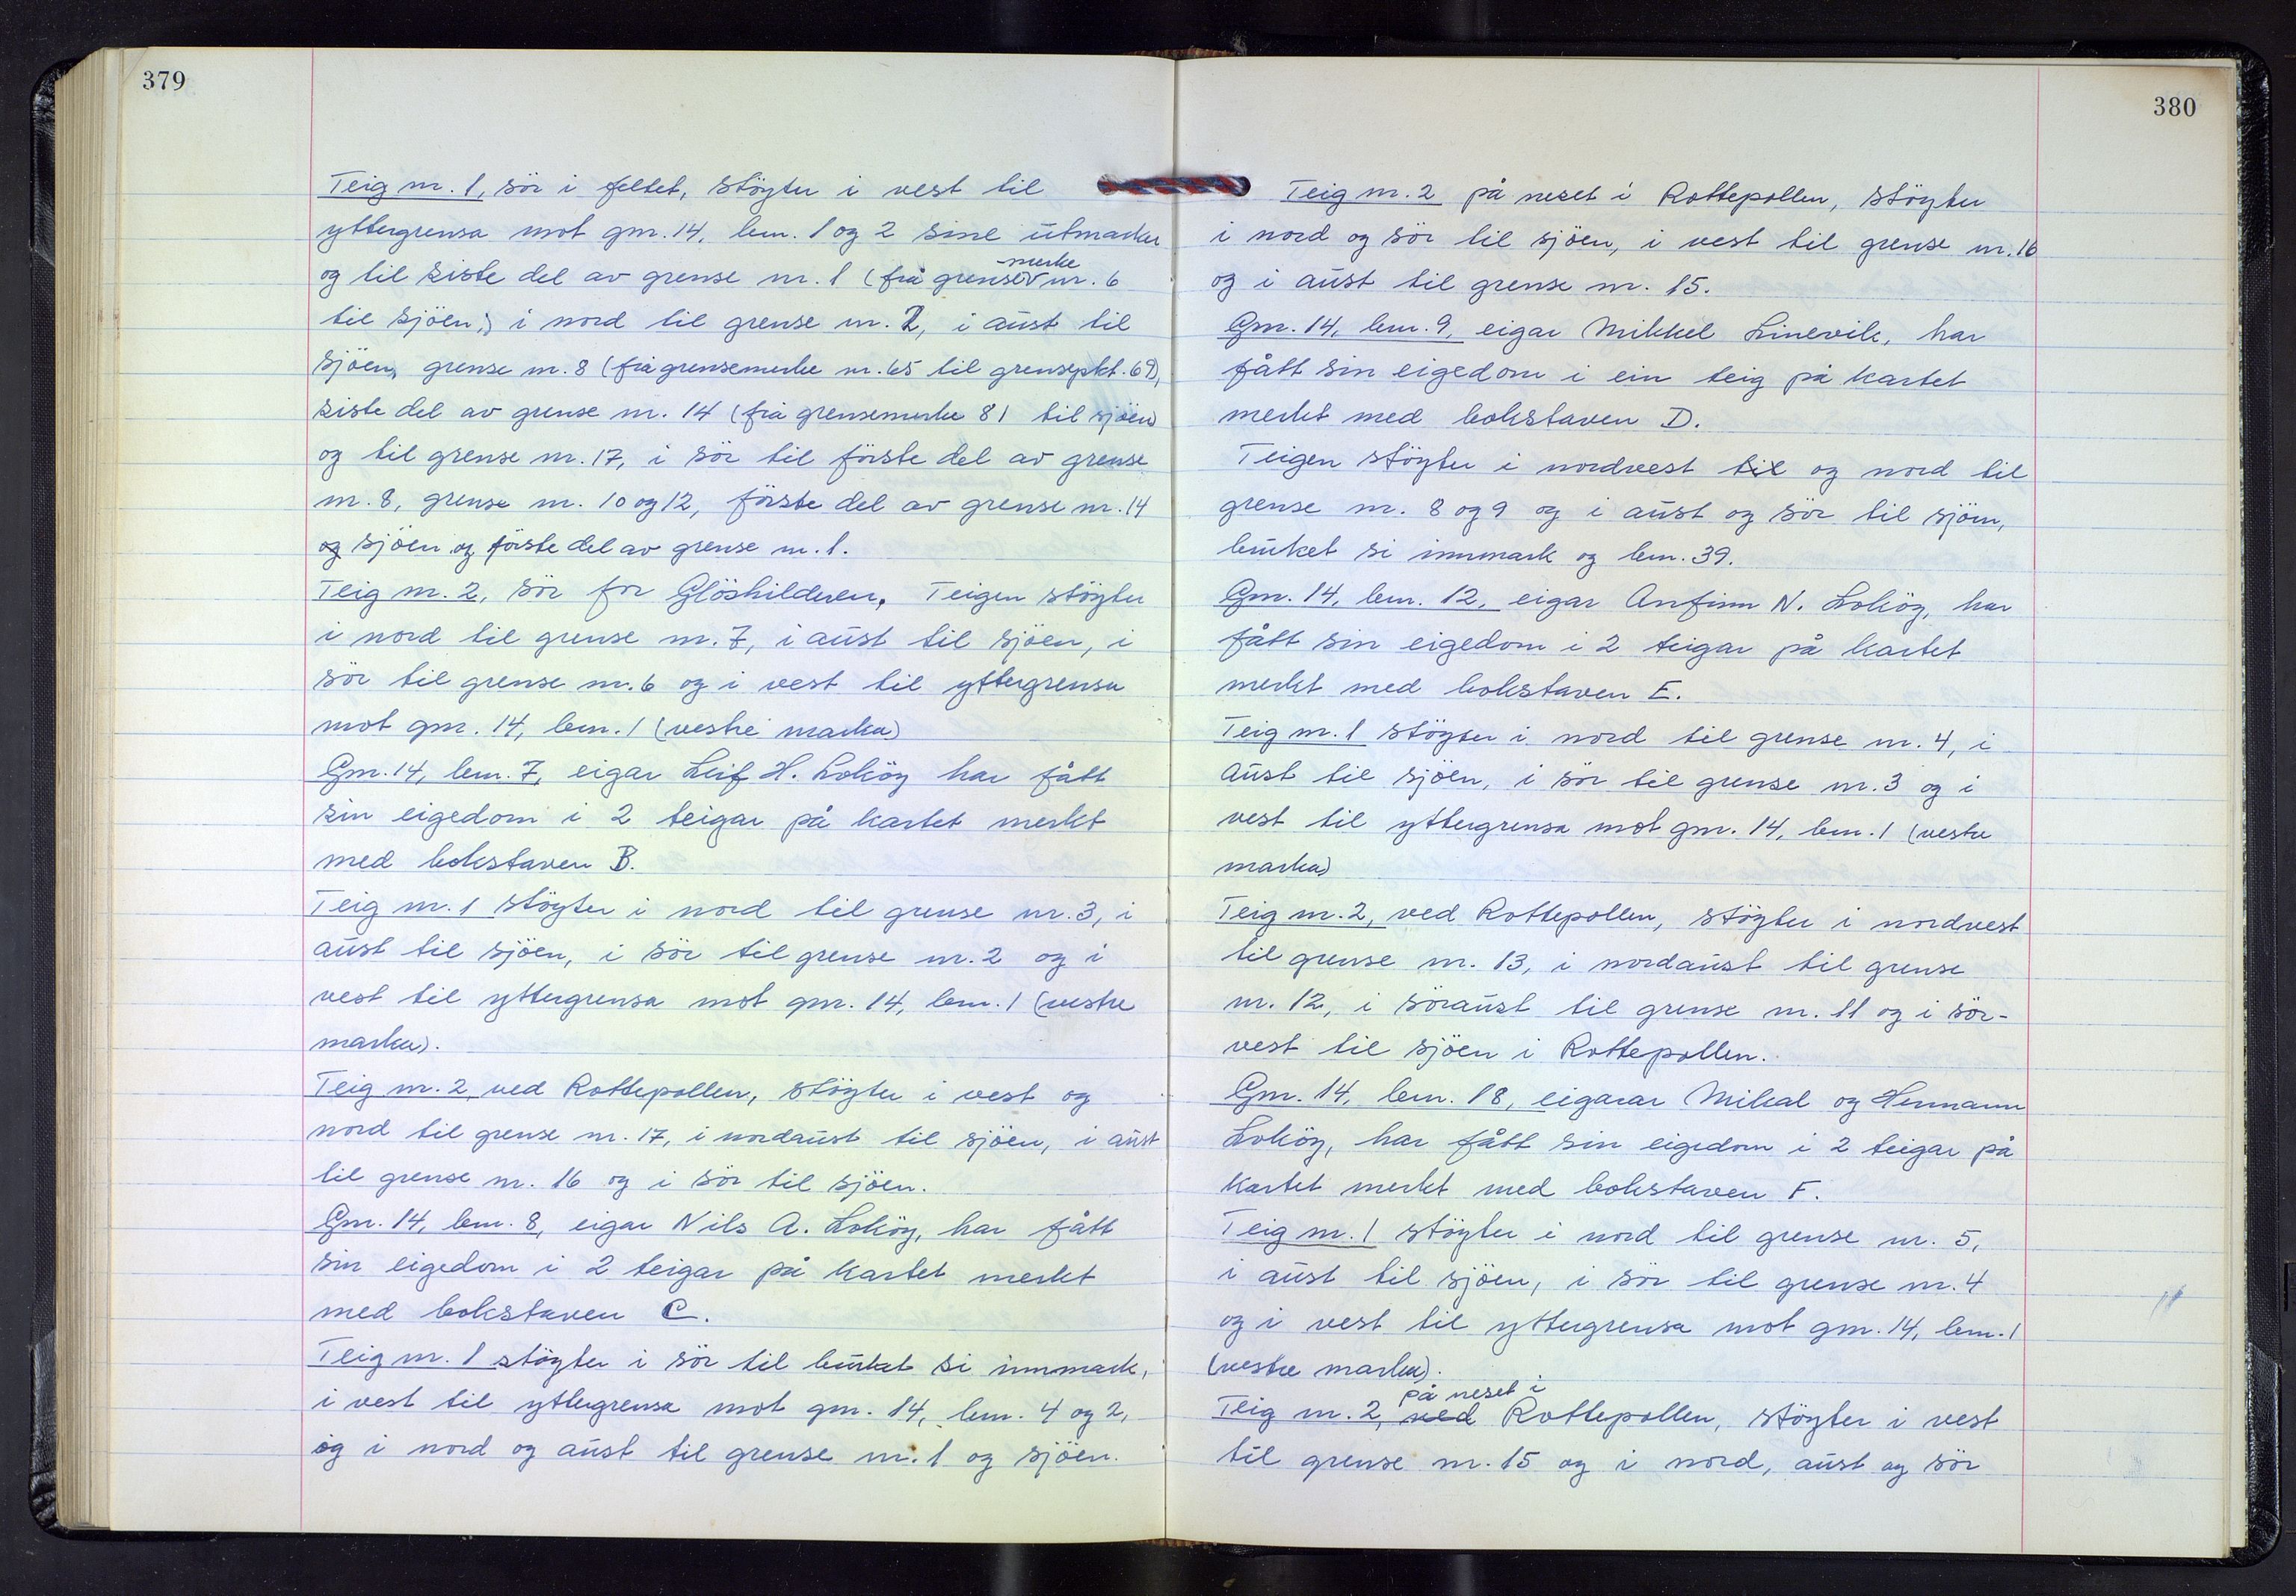 379
Teig nr. 1, sör i feltet, stöyter i vest til
yttergrensa mot gnr. 14, bnr. 1 og 2 sine utmarker
og til siste del av grense nr. 1 (frå grensemerke nr. 6
til sjöen), i nord til grense nr. 2, i aust til
sjöen, grense nr. 8 (frå grensemerke nr. 65 til grensepkt. 69),
siste del av grense nr. 14 (frå grensemerke 81 til sjöen)
og til grense nr. 17, i sör til förste del av grense
nr. 8, grense nr. 10 og 12, förste del av grense nr. 14
og sjöen og förste del av grense nr. 1.
Teig nr. 2, sör for Glöshilderen. Teigen stöyter
i nord til grense nr. 7, i aust til sjöen, i
sör til grense nr. 6 og i vest til yttergrensa
mot gnr. 14, bnr. 1 (vestre marka)
Gnr. 14, bnr. 7, eigar Leif H. Loköy har fått
sin eigedom i 2 teigar på kartet merkt
med bokstaven B.
Teig nr. 1 stöyter i nord til grense nr. 3, i
aust til sjöen, i sör til grense nr. 2 og i
vest til yttergrensa mot gnr. 14, bnr. 1 (vestre
marka).
Teig nr. 2, ved Rottepollen, stöyter i vest og
nord til grense nr. 17, i nordaust til sjöen, i aust
til grense nr. 16 og i sör til sjöen.
Gnr. 14, bnr. 8, eigar Nils A. Loköy, har fått
sin eigedom i 2 teigar på kartet merkt
med bokstaven C.
Teig nr. 1 stöyter i sör til bruket si innmark,
i vest til yttergrensa mot gnr. 14, bnr. 4 og 2,
og i nord og aust til grense nr. 1 og sjöen.
380
Teig nr. 2 på neset i Rottepollen, stöyter
i nord og sör til sjöen, i vest til grense nr. 16
og i aust til grense nr. 15.
Gnr. 14, bnr. 9, eigar Mikkel Linevik, har
fått sin eigedom i ein teig på kartet
merkt med bokstaven D.
Teigen stöyter i nordvest til og nord til
grense nr. 8 og 9 og i aust og sör til sjöen,
bruket si innmark og bnr. 39.
Gnr. 14, bnr. 12, eigar Anfinn N. Loköy, har
fått sin eigedom i 2 teigar på kartet
merkt med bokstaven E.
Teig nr. 1 stöyter i nord til grense nr. 4, i
aust til sjöen, i sör til grense nr. 3 og i
vest til yttergrensa mot gnr. 14, bnr. 1 (vestre
marka)
Teig nr. 2, ved Rottepollen, stöyter i nordvest
til grense nr. 13, i nordaust til grense
nr. 12, i söraust til grense nr. 11 og i sör-
vest til sjöen i Rottepollen.
Gnr. 14, bnr. 18, eigarar Mikal og Hermann
Loköy, har fått sin eigedom i 2 teigar på
kartet merkt med bokstaven F.
Teig nr. 1 stöyter i nord til grense nr. 5,
i aust til sjöen, i sör til grense nr. 4
og i vest til yttergrensa mot gnr. 14, bnr. 1
(vestre marka).
på neset i
Teig nr. 2, ved Rottepollen, stöyter i vest
til grense nr. 15 og i nord, aust og sör